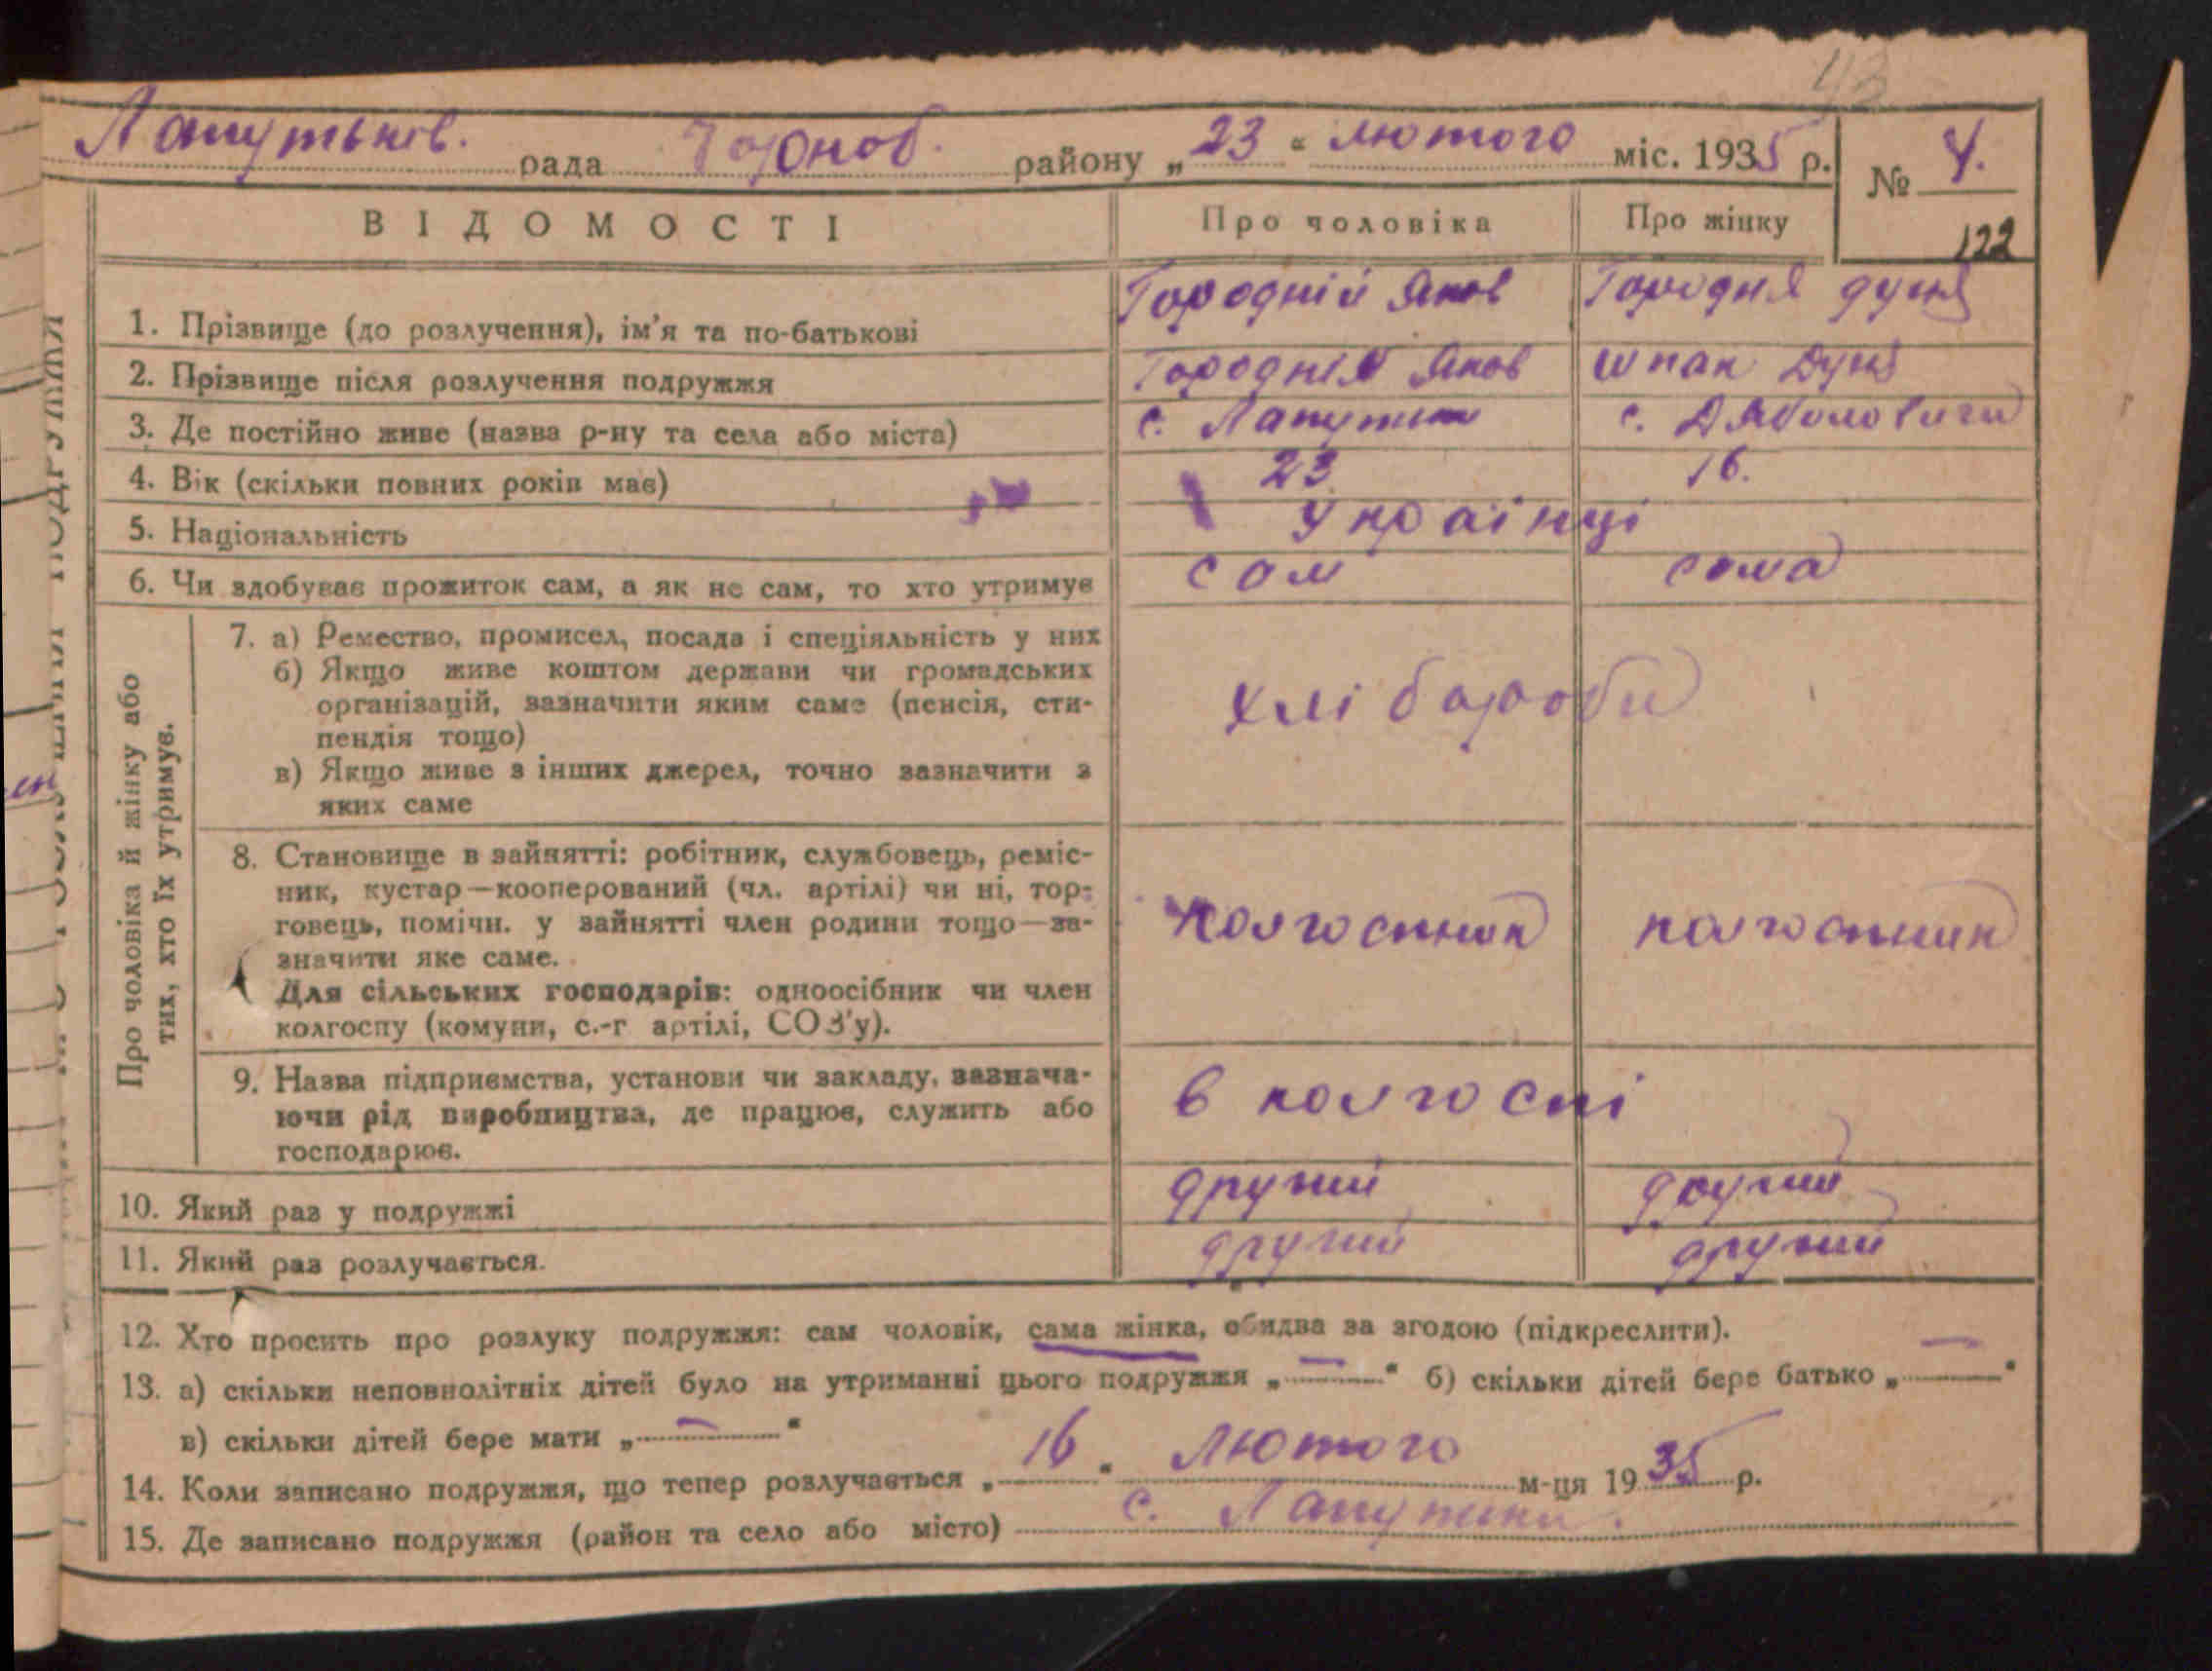 43
Лапутьків. рада Чорноб. району „23“ лютого міс. 1935 р.
№ 4.
122
ВІДОМОСТІ Про чоловіка Про жінку
1. Прізвище (до розлучення), ім’я та по-батькові Городній Яков Городня Дуня
2. Прізвище після розлучення подружжя Городній Яков Шпак Дуня
3. Де постійно живе (назва р-ну та села або міста) с. Лапутьки с.
4. Вік (скільки повних років має) 23 16.
5. Національність Українці
6. Чи здобуває прожиток сам, а як не сам, то хто утримує сам сама
Про чоловіка й жінку або
тих, хто їх утримує.
7. а) Ремество, промисел, посада і спеціяльність у них
б) Якщо живе коштом держави чи громадських
організацій, зазначити яким саме (пенсія, сти-
пендія тощо)
в) Якщо живе з інших джерел, точно зазначити з
яких саме
хлібороби
8. Становище в зайнятті: робітник, службовець, реміс-
ник, кустар—кооперований (чл. артілі) чи ні, тор-
говець, помічн. у зайнятті член родини тощо—за-
значити яке саме.
Для сільських господарів: одноосібник чи член
колгоспу (комуни, с.-г артілі, СОЗ’у).
колгоспник колгоспник
9. Назва підприємства, установи чи закладу, зазнача-
ючи рід виробництва, де працює, служить або
господарює.
в колгоспі
10. Який раз у подружжі другий другий
11. Який раз розлучається. другий другий
12. Хто просить про розлуку подружжя: сам чоловік, сама жінка, обидва за згодою (підкреслити).
13. а) скільки неповнолітніх дітей було на утриманні цього подружжя „—“ б) скільки дітей бере батько „—“
в) скільки дітей бере мати „—“
14. Коли записано подружжя, що тепер розлучається „16“ лютого м-ця 1935 р.
15. Де записано подружжя (район та село або місто) с. Лапутьки.